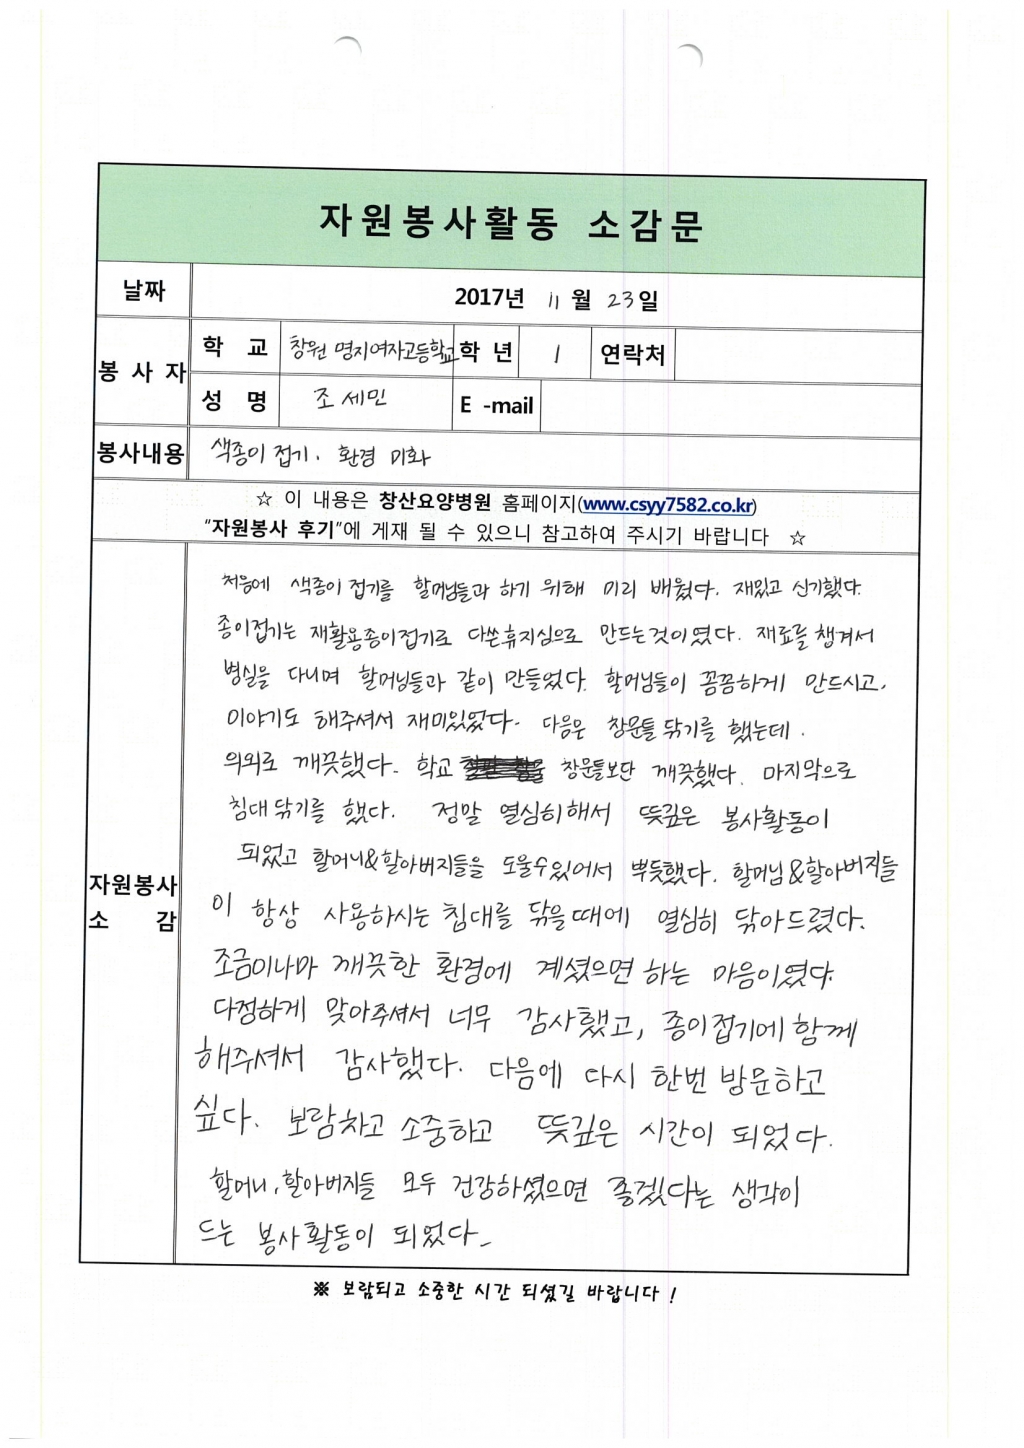 자원봉사활동 소감문
날짜 2017년 11월 23일
봉사자 학교 창원 명지여자고등학교 학년 1 연락처
성명 조세민 E-mail
봉사내용 색종이 접기, 환경 미화
☆ 이 내용은 창산요양병원 홈페이지(www.csyy7582.co.kr)
“자원봉사 후기”에 게재 될 수 있으니 참고하여 주시기 바랍니다 ☆
자원봉사 소감
처음에 색종이 접기를 할머님들과 하기 위해 미리 배웠다. 재밌고 신기했다.
종이접기는 재활용종이접기로 다쓴휴지심으로 만드는것이였다. 재료를 챙겨서
병실을 다니며 할머님들과 같이 만들었다. 할머님들이 꼼꼼하게 만드시고,
이야기도 해주셔서 재미있었다. 다음은 창문틀 닦기를 했는데.
의외로 깨끗했다. 학교 창문틀보단 깨끗했다. 마지막으로
침대 닦기를 했다. 정말 열심히해서 뜻깊은 봉사활동이
되었고 할머니&할아버지들을 도울수있어서 뿌듯했다. 할머님&할아버지들
이 항상 사용하시는 침대를 닦을때에 열심히 닦아드렸다.
조금이나마 깨끗한 환경에 계셨으면 하는 마음이였다.
다정하게 맞아주셔서 너무 감사했고, 종이접기에 함께
해주셔서 감사했다. 다음에 다시 한번 방문하고
싶다. 보람차고 소중하고 뜻깊은 시간이 되었다.
할머니, 할아버지들 모두 건강하셨으면 좋겠다는 생각이
드는 봉사활동이 되었다.
※ 보람되고 소중한 시간 되셨길 바랍니다 !